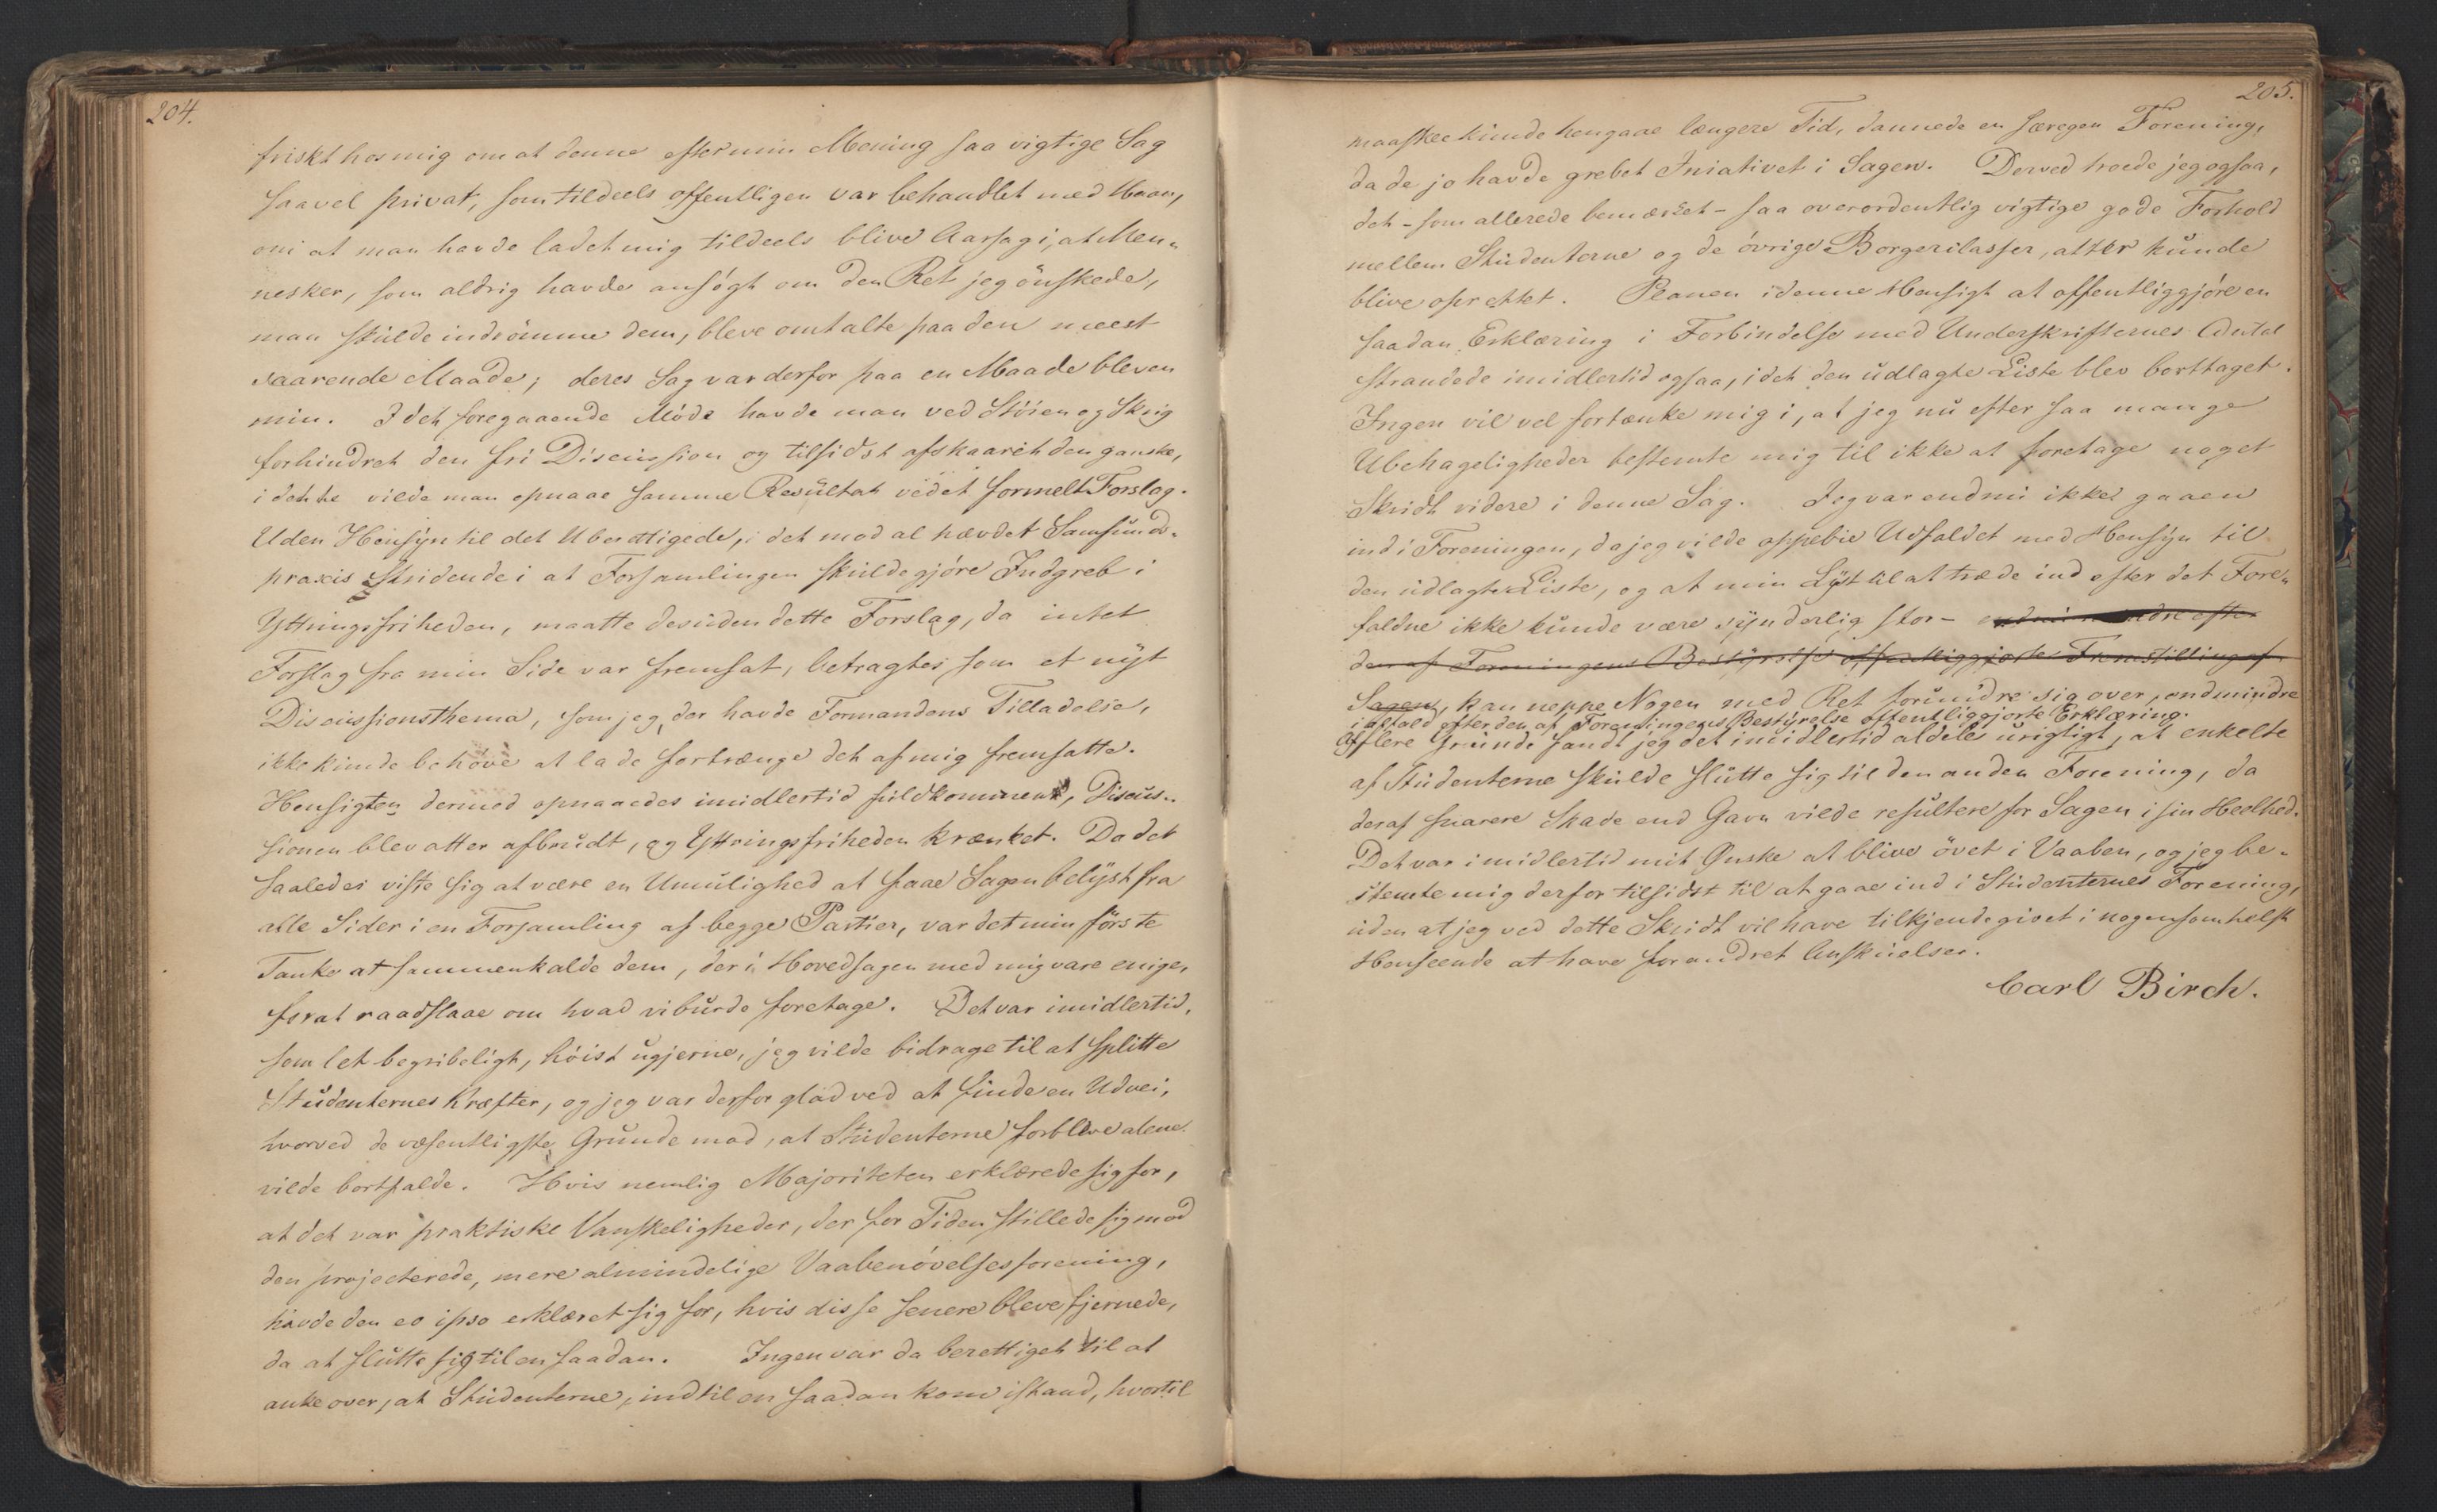 204.
friskt hos mig om at denne efter min Mening saa vigtige Sag
saavel privat, som tildeels offentligen var behandlet med Haan,
om at man havde ladet mig tildeels blive Aarsag i, at Men-
nesker, som aldrig havde ansøgt om den Ret jeg ønskede,
man skulde indrømme dem, bleve omtalte paa den meest
saarende Maade; deres Sag var derfor paa en Maade bleven
min. I det foregaaende Møde havde man ved Støien og Skrig
forhindret den fri Discussion og tilsidst afskaaret den ganske,
i dette vilde man opnaae samme Resultat ved et formelt Forslag.
Uden Hensyn til det Uberettigede, i det mod al hævdet Samfunds-
praxis stridende i at Forsamlingen skulde gjøre Indgreb i
Yttringsfriheden, maatte desuden dette Forslag, da intet
Forslag fra min Side var fremsat, betragtes som et nyt
Discussionsthema, som jeg, der havde Formandens Tilladelse,
ikke kunde behøve at lade fortrænge det af mig fremsatte.
Hensigten dermed opnaaedes imidlertid fuldkomment, Discus-
sionen blev atter afbrudt, og Yttringsfriheden krænket. Da det
saaledes viste sig at være en Umulighed at faae Sagen belyst fra
alle Sider i en Forsamling af begge Partier, var det min første
Tanke at sammenkalde dem, der i Hovedsagen med mig vare enige,
forat raadslaae om hvad vi burde foretage. Det var imidlertid,
som let begribeligt, høist ugjerne, jeg vilde bidrage til at splitte
Studenternes Kræfter, og jeg var derfor glad ved at finde en Udvei,
hvorved de væsentligste Grunde mod, at Studenterne forbleve alene
vilde bortfalde. Hvis nemlig Majoriteten erklærede sig for,
at det var praktiske Vanskeligheder, der for Tiden stillede sig mod
den projecterede, mere almindelige Vaabenøvelsesforening,
havde den eo ipso erklæret sig for, hvis disse senere bleve fjernede,
da at slutte sig til en saadan. Ingen var da berettiget til at
anke over, at Studenterne, indtil en saadan kom istand, hvortil
205.
maaskee kunde hengaae længere Tid, dannede en særegen Forening,
da de jo havde grebet Iniativet i Sagen. Derved troede jeg ogsaa,
det - som allerede bemærket - saa overordentlig vigtige gode Forhold
mellem Studenterne og de øvrige Borgerclasser, atter kunde
blive oprettet. Planen i denne Hensigt at offentliggjøre en
saadan Erklæring i Forbindelse med Underskrifternes Antal
strandede imidlertid ogsaa, i det den udlagte Liste blev borttaget.
Ingen vil vel fortænke mig i, at jeg nu efter saa mange
Ubehageligheder bestemte mig til ikke at foretage noget
Skridt videre i denne Sag. Jeg var endnu ikke gaaen
ind i Foreningen, da jeg vilde oppebie Udfaldet med Hensyn til
den udlagte Liste, og at min Lyst til at træde ind efter det Fore-
faldne ikke kunde være synderlig stor - endnu mindre efter
den af Foreningens Bestyrelse offentliggjorte Fremstilling af
Sagen, kan neppe Nogen med Ret forundre sig over, endmindre
i alfald efter den af Foreningens Bestyrelse offentliggjorte Erklæring.
Af flere Grunde fandt jeg det imidlertid aldeles urigtigt, at enkelte
af Studenterne skulde slutte sig til den anden Forening, da
deraf snarere Skade end Gavn vilde resultere for Sagen i sin Heelhed.
Det var imidlertid mit Ønske at blive øvet i Vaaben, og jeg be-
stemte mig derfor tilsidst til at gaae ind i Studenternes Forening,
uden at jeg ved dette Skridt vil have tilkjendegivet i nogensomhelst
Henseende at have forandret Anskuelser.
Carl Birch.